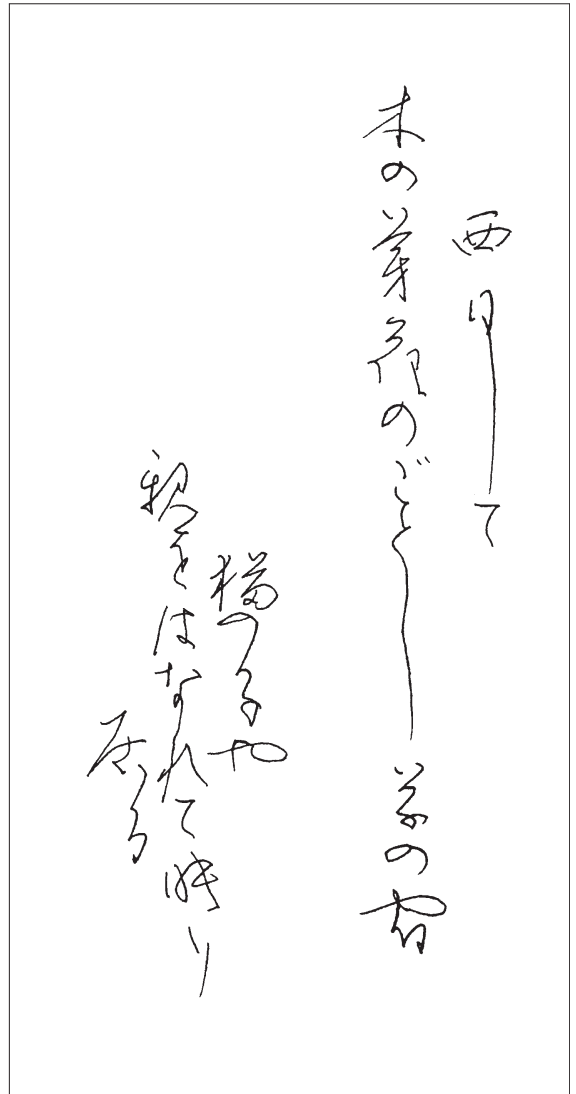 西日して
木の芽花のごとし草の宿
猫の子や
親をはなれて眠り
居る